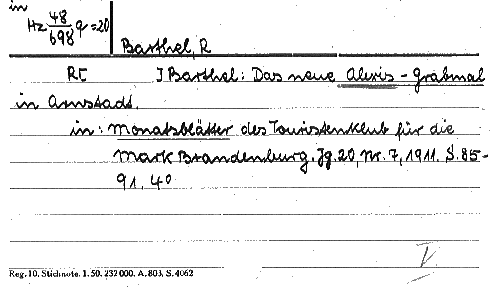 in
Hz 48/698 q = 20
Barthel, R
RE ] Barthel: Das neue Alexis-Grabmal
in Arnstadt.
in: Monatsblätter des Touristenklub für die
Mark Brandenburg. Jg. 20, Nr. 7, 1911. S. 85-
91. 4°
V
Reg. 10. Stichnote. 1. 50. 232 000. A. 803, S. 4062